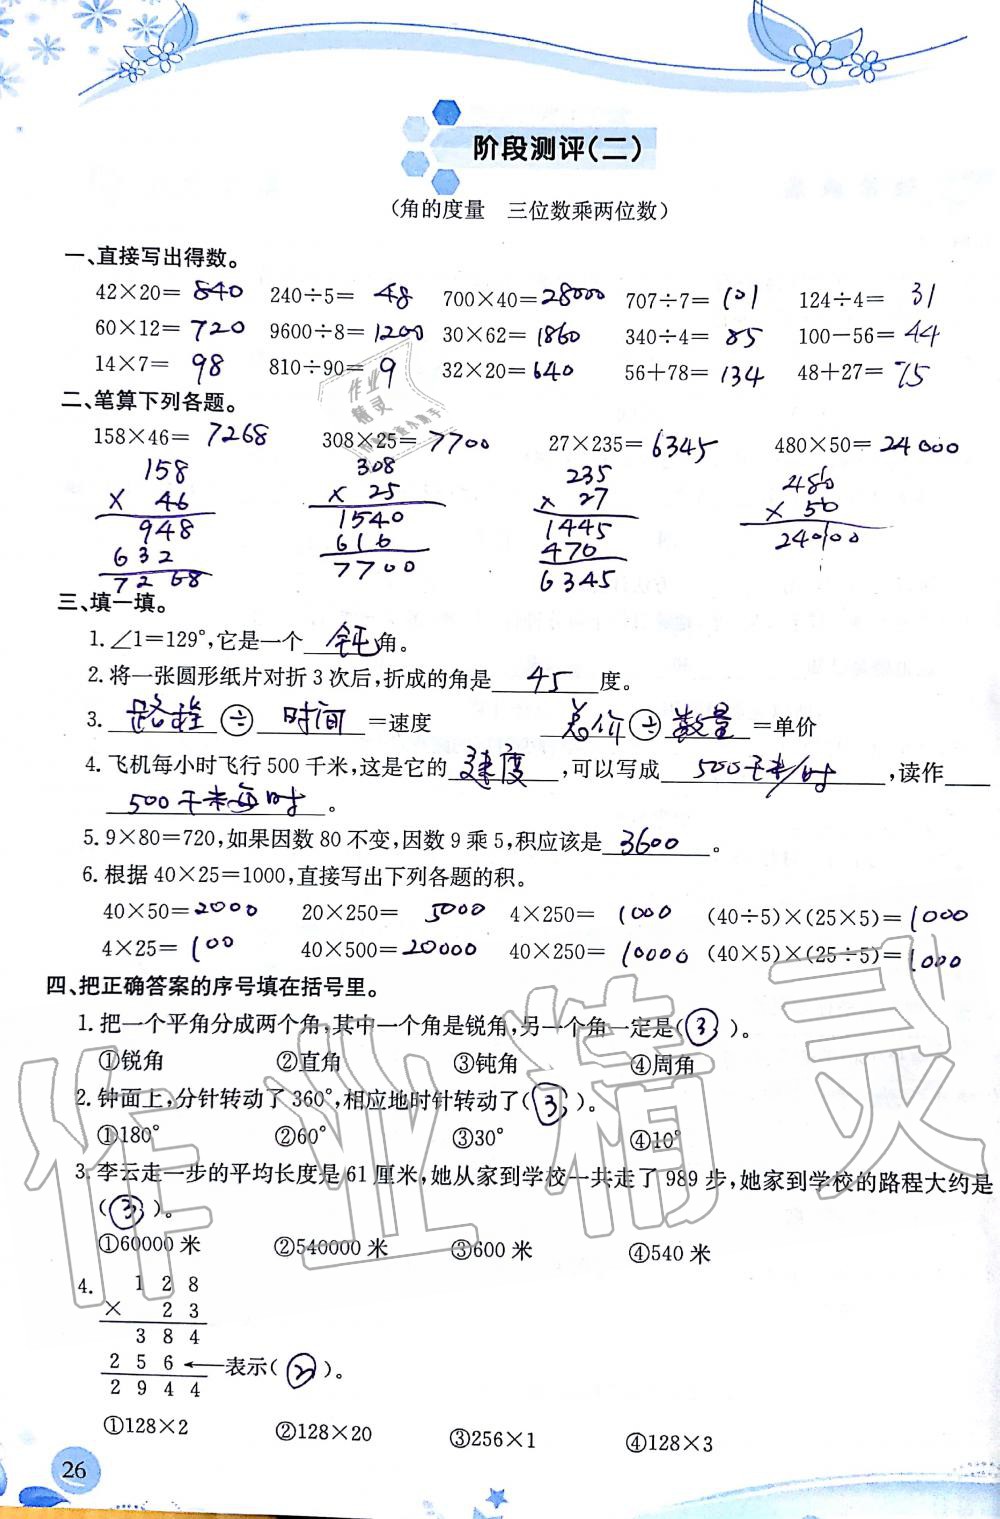 阶段测评(二)
(角的度量 三位数乘两位数)
一、直接写出得数。
42×20= 840 240÷5= 48 700×40= 28000 707÷7= 101 124÷4= 31
60×12= 720 9600÷8= 1200 30×62= 1860 340÷4= 85 100-56= 44
14×7= 98 810÷90= 9 32×20= 640 56+78= 134 48+27= 75
作业
精灵
二、笔算下列各题。
158×46= 7268 308×25= 7700 27×235= 6345 480×50= 24000
158 308 235 480
× 46 × 25 × 27 × 50
948 1540 1445 24000
632 616 470
7268 7700 6345
三、填一填。
1.∠1=129°,它是一个 钝 角。
2.将一张圆形纸片对折3次后,折成的角是 45 度。
3. 路程 ÷ 时间 =速度 总价 ÷ 数量 =单价
4.飞机每小时飞行500千米,这是它的 速度 ,可以写成 500千米/时 ,读作
500千米每时 。
5.9×80=720,如果因数80不变,因数9乘5,积应该是 3600 。
6.根据40×25=1000,直接写出下列各题的积。
40×50= 2000 20×250= 5000 4×250= 1000 (40÷5)×(25×5)= 1000
4×25= 100 40×500= 20000 40×250= 10000 (40×5)×(25÷5)= 1000
四、把正确答案的序号填在括号里。
1.把一个平角分成两个角,其中一个角是锐角,另一个角一定是( ③ )。
①锐角 ②直角 ③钝角 ④周角
2.钟面上,分针转动了360°,相应地时针转动了( ③ )。
①180° ②60° ③30° ④10°
3.李云走一步的平均长度是61厘米,她从家到学校一共走了989步,她家到学校的路程大约是
( ③ )。
①60000米 ②540000米 ③600米 ④540米
4. 1 2 8
× 2 3
3 8 4
2 5 6 ←表示( ② )。
2 9 4 4
①128×2 ②128×20 ③256×1 ④128×3
26
作业精灵